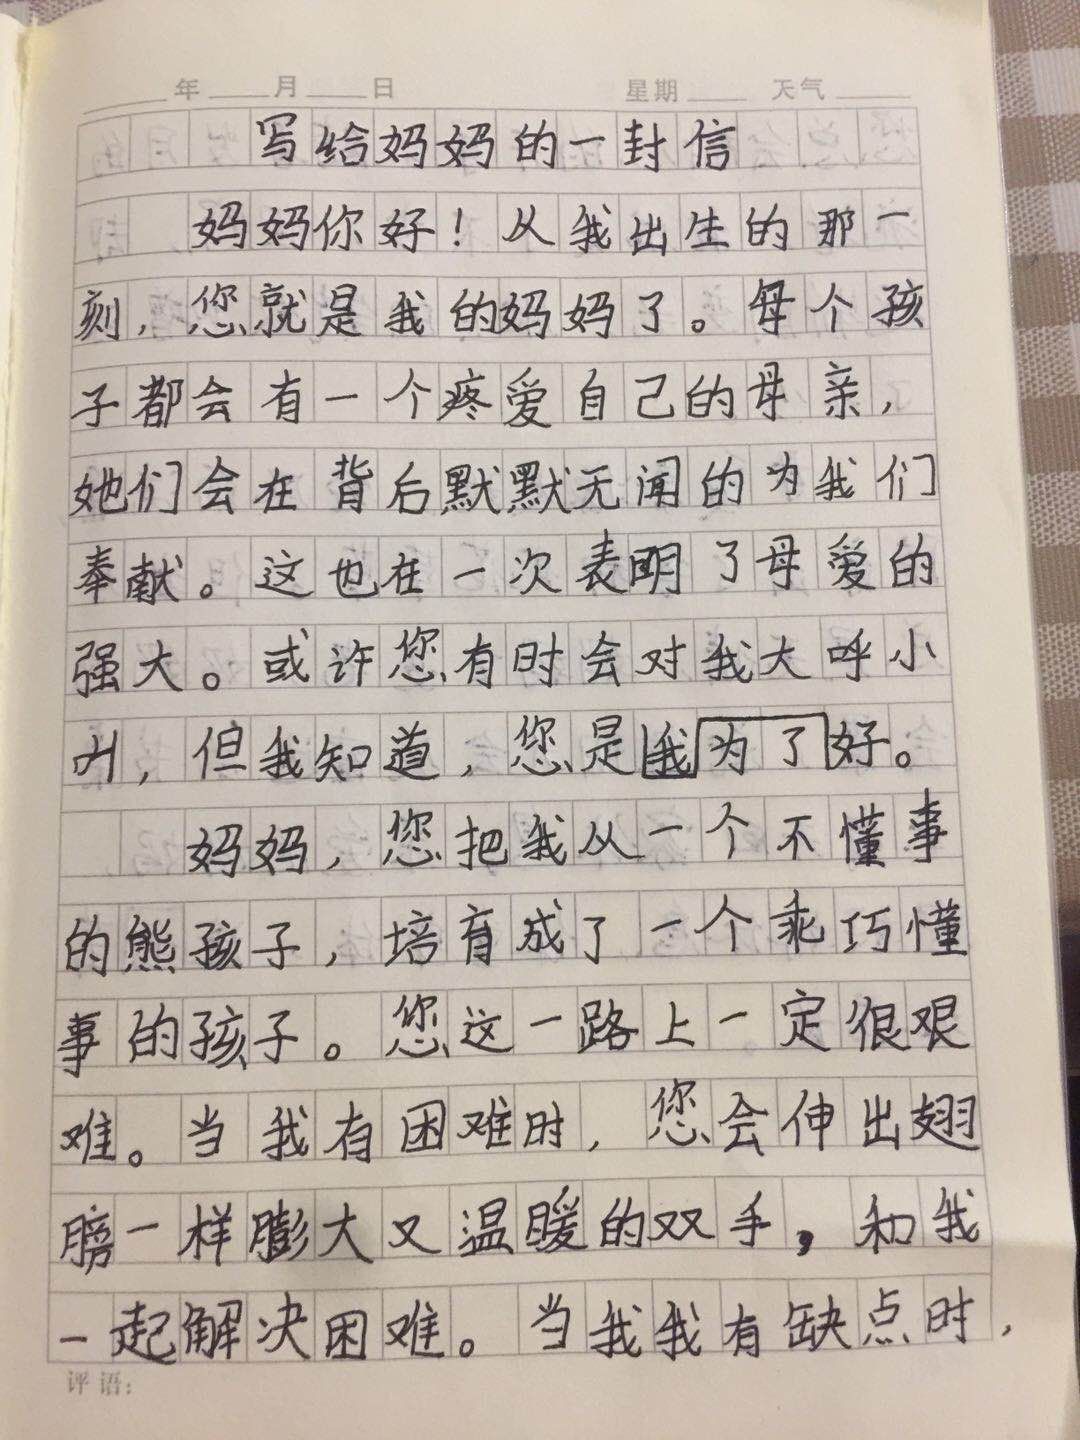 年 月 日 星期 天气
写给妈妈的一封信
妈妈你好！从我出生的那一
刻，您就是我的妈妈了。每个孩
子都会有一个疼爱自己的母亲，
她们会在背后默默无闻的为我们
奉献。这也在一次表明了母爱的
强大。或许您有时会对我大呼小
叫，但我知道，您是我为了好。
妈妈，您把我从一个不懂事
的熊孩子，培育成了一个乖巧懂
事的孩子。您这一路上一定很艰
难。当我有困难时，您会伸出翅
膀一样膨大又温暖的双手，和我
一起解决困难。当我我有缺点时，
评语：